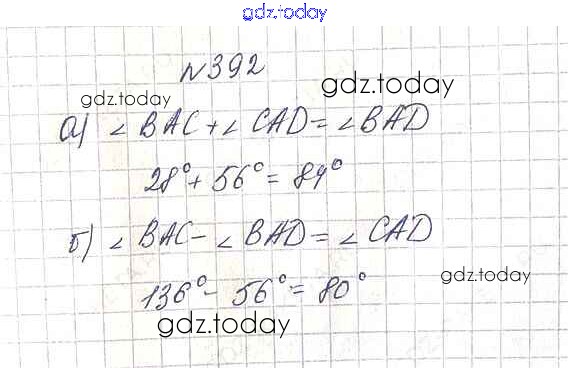 gdz.today
№392
gdz.today
gdz.today
а) ∠BAC+∠CAD=∠BAD
28°+56°=84°
б) ∠BAC-∠BAD=∠CAD
gdz.today
136°-56°=80°
gdz.today